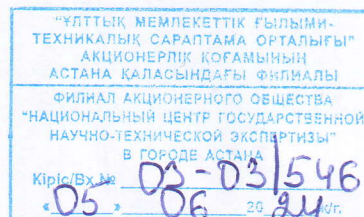 "ҰЛТТЫҚ МЕМЛЕКЕТТІК ҒЫЛЫМИ-
ТЕХНИКАЛЫҚ САРАПТАМА ОРТАЛЫҒЫ"
АКЦИОНЕРЛІК ҚОҒАМЫНЫҢ
АСТАНА ҚАЛАСЫНДАҒЫ ФИЛИАЛЫ
ФИЛИАЛ АКЦИОНЕРНОГО ОБЩЕСТВА
"НАЦИОНАЛЬНЫЙ ЦЕНТР ГОСУДАРСТВЕННОЙ
НАУЧНО-ТЕХНИЧЕСКОЙ ЭКСПЕРТИЗЫ"
В ГОРОДЕ АСТАНА
Кіріс/Вх.№ 03-03/546
«05» 06 2024 ж/г.